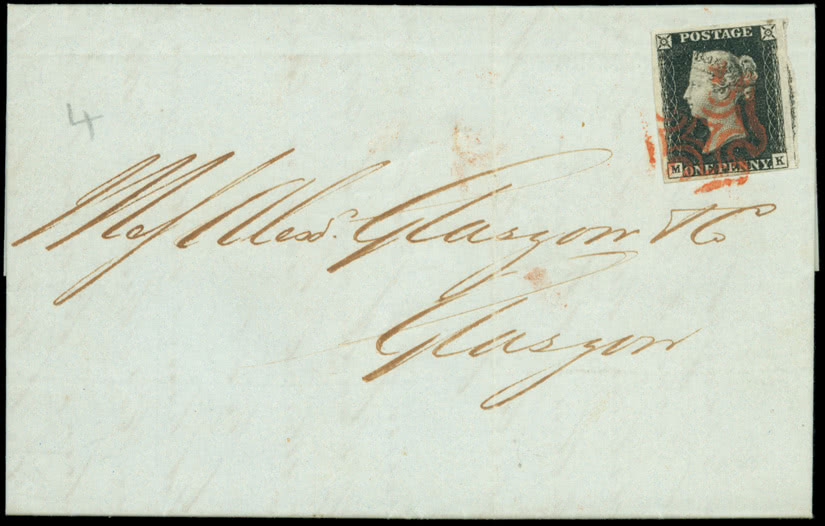 POSTAGE
M ONE PENNY K
4
Mess Alexr. Glasgow & Co
Glasgow